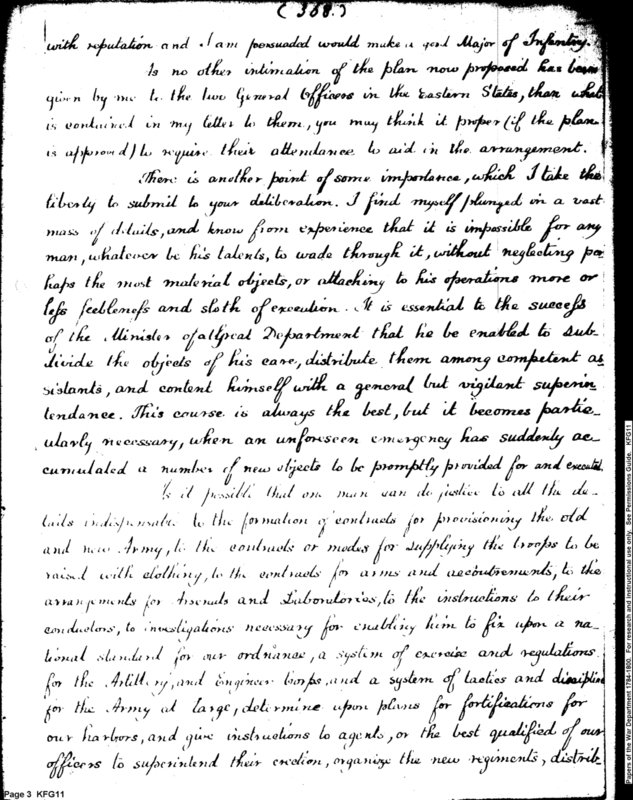 (368.)
with reputation and I am persuaded would make a good Major of Infantry.
As no other intimation of the plan now proposed has been
given by me to the two General Officers in the Eastern States, than what
is contained in my letter to them, you may think it proper (if the plan
is approved) to require their attendance to aid in the arrangement.
There is another point of some importance, which I take the
liberty to submit to your deliberation. I find myself plunged in a vast
mass of details, and know from experience that it is impossible for any
man, whatever be his talents, to wade through it, without neglecting per
haps the most material objects, or attaching to his operations more or
less feebleness and sloth of execution. It is essential to the success
of the Minister of a Great Department that he be enabled to sub-
divide the objects of his care, distribute them among competent as
sistants, and content himself with a general but vigilant superin-
tendance. This course is always the best, but it becomes partic-
ularly necessary, when an unforeseen emergency has suddenly ac-
cumulated a number of new objects to be promptly provided for and executed.
Is it possible that one man can do justice to all the de-
tails indispensable to the formation of contracts for provisioning the old
and new Army, to the contracts or modes for supplying the troops to be
raised with clothing, to the contracts for arms and accoutrements, to the
arrangements for Arsenals and Laboratories, to the instructions to their
conductors, to investigations necessary for enabling him to fix upon a na-
tional standard for our ordnance, a system of exercise and regulations
for the Artillery, and Engineer Corps, and a system of tactics and discipline
for the Army at large, determine upon plans for fortifications for
our harbors, and give instructions to agents, or the best qualified of our
officers to superintend their erection, organize the new regiments, distrib-
Page 3 KFG11
Papers of the War Department 1784-1800. For research and instructional use only. See Permissions Guide. KFG11